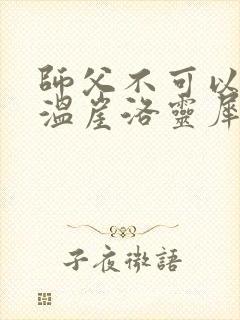 師父不可以
溫崖洛靈犀
子夜微語